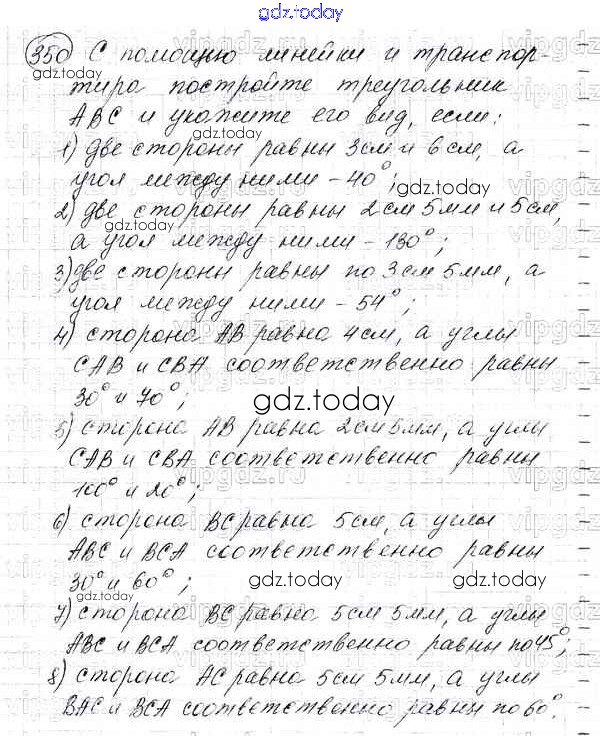 gdz.today
350 С помощью линейки и транспор-
gdz.today
тира постройте треугольник
АВС и укажите его вид, если:
gdz.today
1) две стороны равны 3см и 6см, а
угол между ними - 40°;
gdz.today
2) две стороны равны 2см 5мм и 5см,
а угол между ними - 130°;
3) две стороны равны по 3см 5мм, а
угол между ними - 54°;
4) сторона АВ равна 4см, а углы
САВ и СВА соответственно равны
30° и 70°;
gdz.today
5) сторона АВ равна 2см 5мм, а углы
САВ и СВА соответственно равны
100° и 20°;
6) сторона ВС равна 5см, а углы
АВС и ВСА соответственно равны
30° и 60°;
gdz.today gdz.today
7) сторона ВС равна 5см 5мм, а углы
АВС и ВСА соответственно равны по 45°;
8) сторона АС равна 5см 5мм, а углы
ВАС и ВСА соответственно равны по 60°.
gdz.today